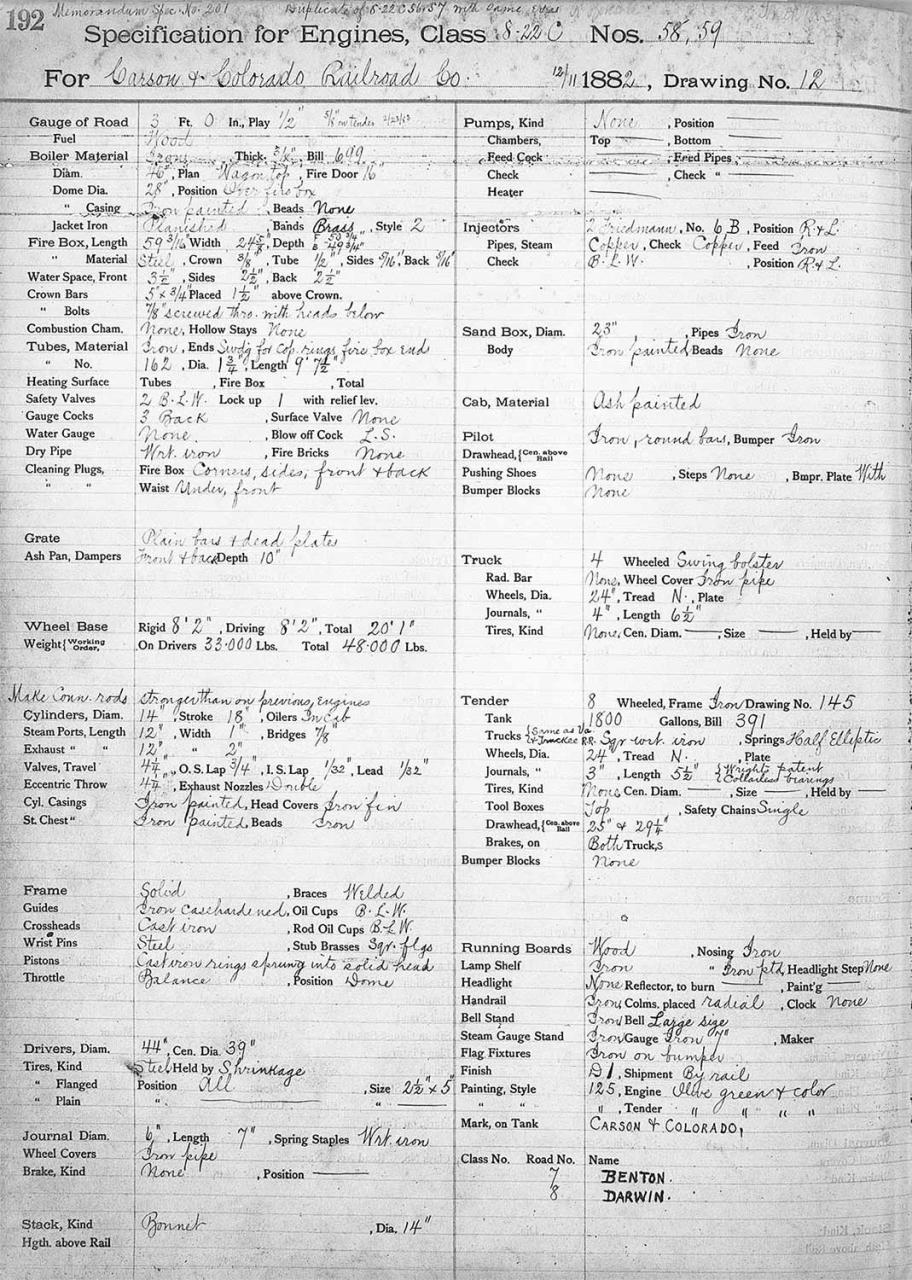 192
Memorandum Spec. No. 201 Duplicate of 8-22 C 56 & 57 with same extras
Specification for Engines, Class 8-22 C Nos. 58, 59
For Carson & Colorado Railroad Co. 12/11 1882, Drawing No. 12
Gauge of Road 3 Ft. 0 In., Play 1/2" 5/8" on tender 2/23/83
Fuel Wood
Boiler Material Iron, Thick. 5/16", Bill 699
Diam. 46", Plan Wagon top, Fire Door 16"
Dome Dia. 28", Position Over fire box
" Casing Iron painted, Beads None
Jacket Iron Planished, Bands Brass, Style 2
Fire Box, Length 59 3/16" Width 24 5/8", Depth 49 3/4"
" Material Steel, Crown 3/8", Tube 1/2", Sides 5/16" Back 5/16"
Water Space, Front 3 1/2", Sides 2 1/2", Back 2 1/2"
Crown Bars 5" x 3/4" Placed 1 1/2" above Crown.
" Bolts 7/8" screwed thro. with heads below
Combustion Cham. None, Hollow Stays None
Tubes, Material Iron, Ends Swdg for cop. rings fire box end
" No. 162, Dia. 1 3/4", Length 9' 7 1/2"
Heating Surface Tubes , Fire Box , Total
Safety Valves 2 B.L.W. Lock up 1 with relief lev.
Gauge Cocks 3 Back , Surface Valve None
Water Gauge None. , Blow off Cock L.S.
Dry Pipe Wrt. iron , Fire Bricks None
Cleaning Plugs, Fire Box Corners, sides, front & back
" " Waist Under, front
Grate Plain bars & dead plates
Ash Pan, Dampers Front & back Depth 10"
Wheel Base Rigid 8' 2", Driving 8' 2", Total 20' 1"
Weight {Working Order, On Drivers 33.000 Lbs. Total 48.000 Lbs.
Make Conn. rods stronger than on previous engines
Cylinders, Diam. 14", Stroke 18", Oilers In Cab
Steam Ports, Length 12", Width 1", Bridges 7/8"
Exhaust " " 12" " 2"
Valves, Travel 4 1/2", O. S. Lap 3/4", I. S. Lap 1/32", Lead 1/32"
Eccentric Throw 4 1/2", Exhaust Nozzles Double
Cyl. Casings Iron painted, Head Covers Iron fin
St. Chest " Iron painted, Beads Iron
Frame Solid , Braces Welded
Guides Iron casehardened, Oil Cups B.L.W.
Crossheads Cast iron , Rod Oil Cups B.L.W.
Wrist Pins Steel , Stub Brasses Sqr. flgs
Pistons Cast iron rings sprung into solid head
Throttle Balance , Position Dome
Drivers, Diam. 44", Cen. Dia. 39"
Tires, Kind Steel Held by Shrinkage
" Flanged Position All , Size 2 1/2" x 5"
" Plain " "
Journal Diam. 6", Length 7", Spring Staples Wrt. iron
Wheel Covers Iron pipe
Brake, Kind None , Position
Stack, Kind Bonnet , Dia. 14"
Hgth. above Rail
Pumps, Kind None , Position
Chambers, Top , Bottom
Feed Cock , Feed Pipes
Check , Check "
Heater
Injectors 2 Friedmann, No. 6 B, Position R & L.
Pipes, Steam Copper, Check Copper, Feed Iron
Check B.L.W. , Position R & L.
Sand Box, Diam. 23" , Pipes Iron
Body Iron painted, Beads None
Cab, Material Ash painted
Pilot Iron, round bars, Bumper Iron
Drawhead, {Cen. above Rail
Pushing Shoes None , Steps None , Bmpr. Plate With
Bumper Blocks None
Truck 4 Wheeled Swing bolster
Rad. Bar None, Wheel Cover Iron pipe
Wheels, Dia. 24", Tread N., Plate
Journals, " 4", Length 6 1/2"
Tires, Kind None, Cen. Diam. , Size , Held by
Tender 8 Wheeled, Frame Iron Drawing No. 145
Tank 1800 Gallons, Bill 391
Trucks {Same as Va. & Truckee R.R. Sqr. wrt. iron , Springs Half Elliptic
Wheels, Dia. 24", Tread N. , Plate
Journals, " 3", Length 5 1/2" {Wright's patent Collarless bearings
Tires, Kind None Cen. Diam. , Size , Held by
Tool Boxes Top , Safety Chains Single
Drawhead, {Cen. above Rail 25" & 29 1/4"
Brakes, on Both Trucks
Bumper Blocks None
Running Boards Wood , Nosing Iron
Lamp Shelf Iron " Iron ptd, Headlight Step None
Headlight None Reflector, to burn , Paint'g
Handrail Iron, Colms, placed radial , Clock None
Bell Stand Iron Bell Large size
Steam Gauge Stand Iron Gauge Iron 7" , Maker
Flag Fixtures Iron on bumper
Finish D1, Shipment By rail
Painting, Style 125, Engine Olive green & color
" " " , Tender " " " "
Mark, on Tank CARSON & COLORADO,
Class No. Road No. Name
7 BENTON.
8 DARWIN.